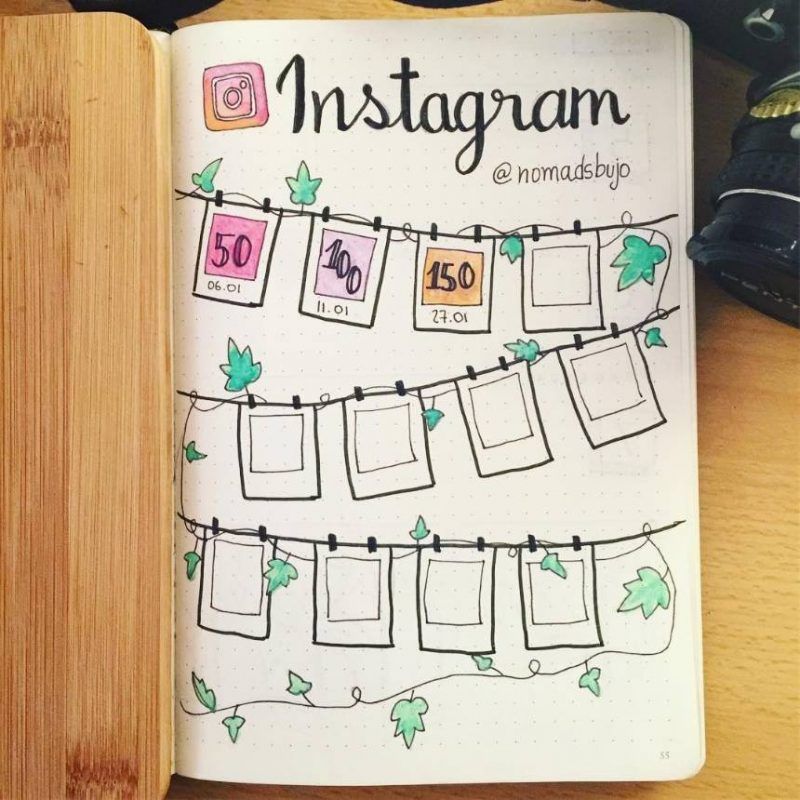 Instagram
@nomadsbujo
50 100 150
06.01 11.01 27.01
55